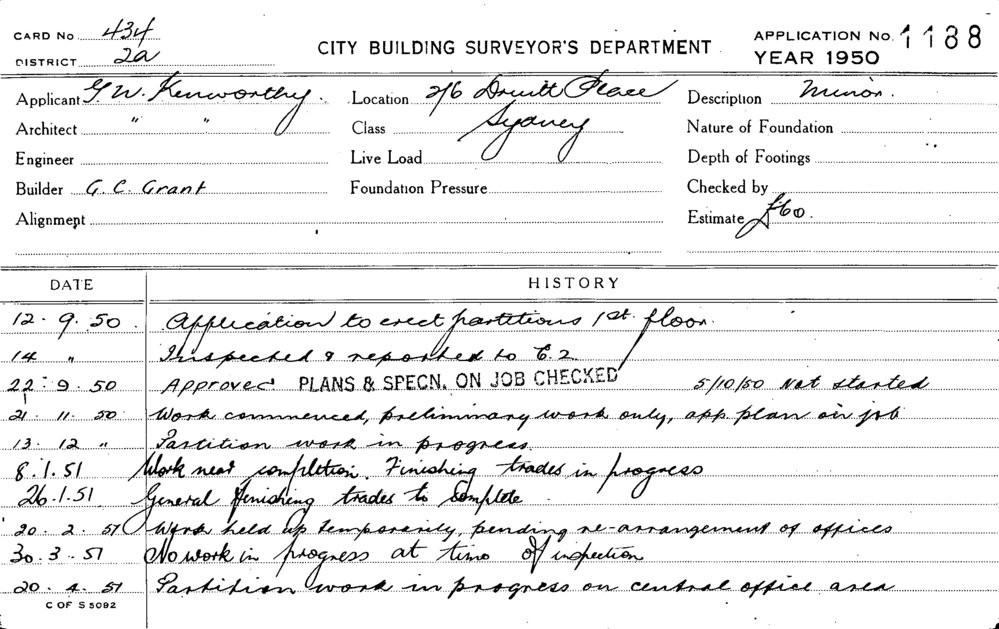 CARD No 434
DISTRICT 2a
CITY BUILDING SURVEYOR'S DEPARTMENT
APPLICATION No. 1188
YEAR 1950
Applicant G. W. Kenworthy. Location 2/6 Druitt Place Description Minor.
Architect " " Class Sydney Nature of Foundation
Engineer Live Load Depth of Footings
Builder G. C. Grant Foundation Pressure Checked by
Alignment Estimate £60.
DATE HISTORY
12. 9. 50. Application to erect partitions 1st. floor.
14 " Inspected & reported to C.2.
22. 9. 50 Approved PLANS & SPECN. ON JOB CHECKED 5/10/50 Not started
21. 11. 50 Work commenced, preliminary work only, app. plan on job
13. 12 " Partition work in progress.
8.1.51 Work near completion. Finishing trades in progress
26.1.51 General finishing trades to complete.
20. 2. 51 Work held up temporarily, pending re-arrangement of offices
30.3.51 No work in progress at time of inspection
20. 4. 51 Partition work in progress on central office area
C OF S 5092